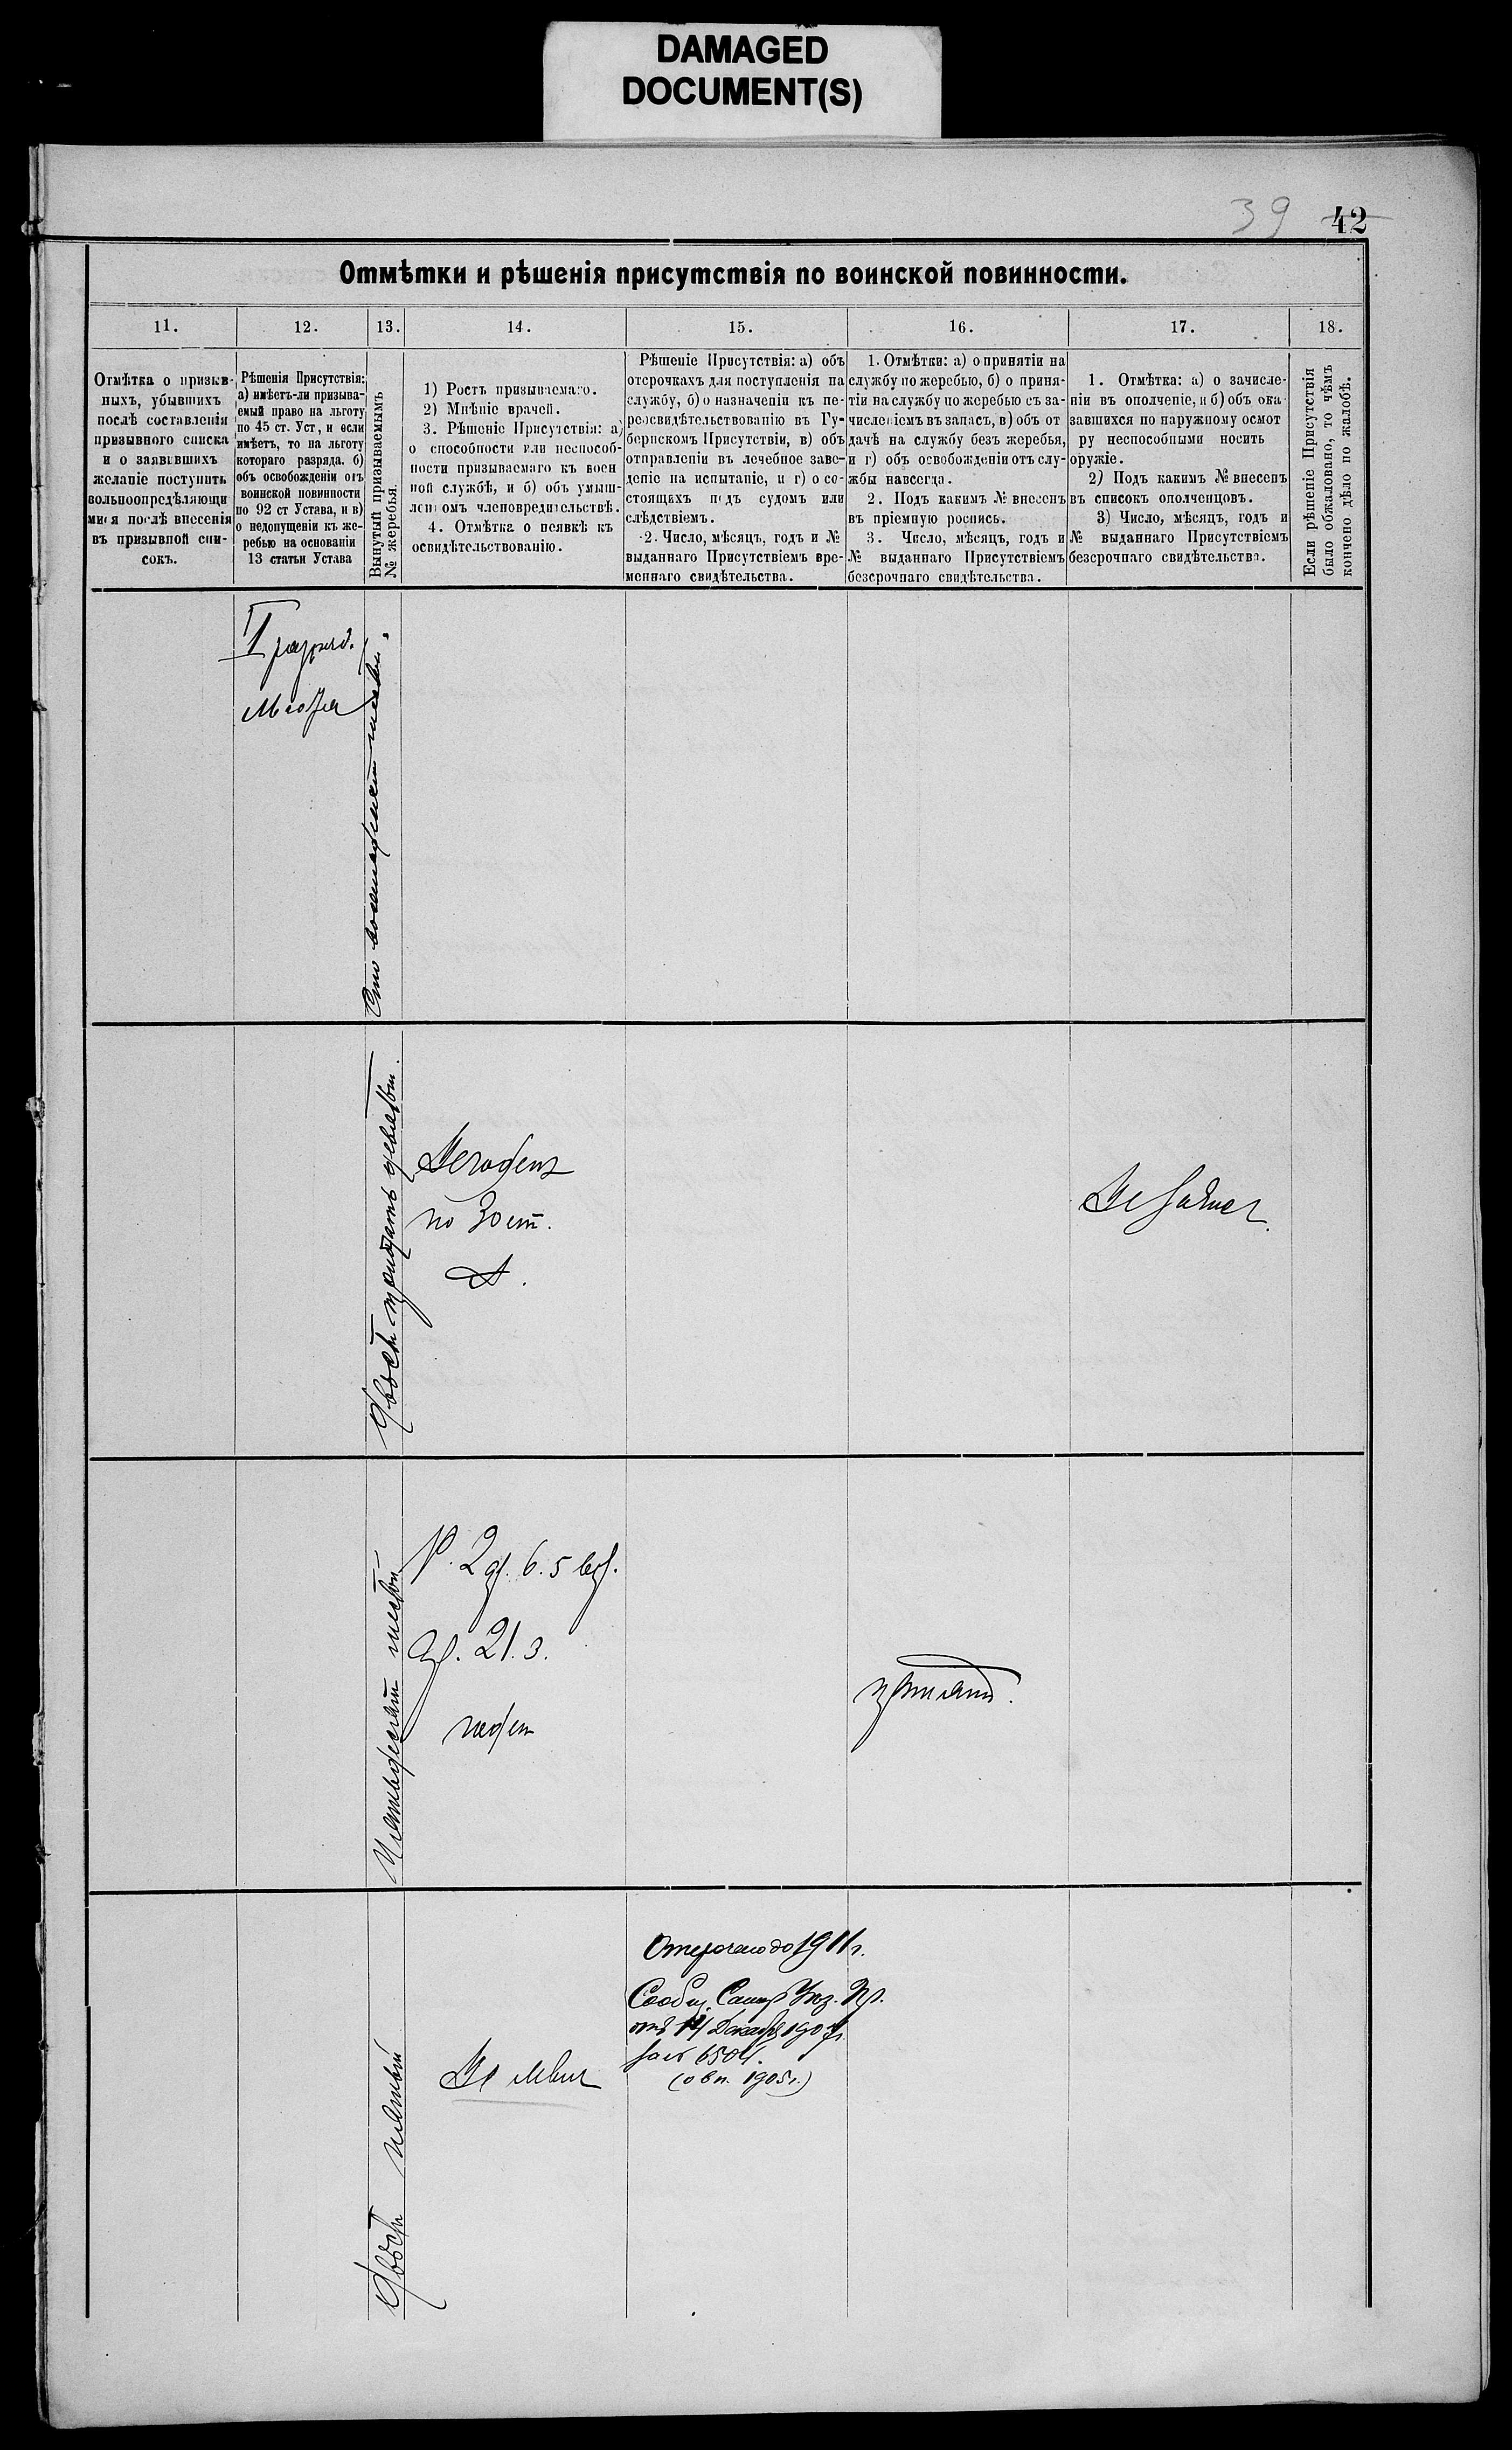 DAMAGED
DOCUMENT(S)
39 42
Отмѣтки и рѣшенія присутствія по воинской повинности.
11. 12. 13. 14. 15. 16. 17. 18.
Отмѣтка о призыв-
ныхъ, убывшихъ
послѣ составленія
призывного списка
и о заявившихъ
желаніе поступить
вольноопредѣляющи
мися послѣ внесенія
въ призывной спи-
сокъ.
Рѣшенія Присутствія:
а) имѣетъ-ли призыва-
емый право на льготу
по 45 ст. Уст, и если
имѣетъ, то на льготу
котораго разряда. б)
объ освобожденіи отъ
воинской повинности
по 92 ст Устава, и в)
о недопущеніи къ же-
ребью на основаніи
13 статьи Устава
Вынутый призываемымъ
№ жеребья.
1) Ростъ призываемаго.
2) Мнѣніе врачей.
3. Рѣшеніе Присутствія: а)
о способности или неспособ-
ности призываемаго къ воен
ной службѣ, и б) объ умыш-
леномъ членовредительствѣ.
4. Отмѣтка о неявкѣ къ
освидѣтельствованію.
Рѣшеніе Присутствія: а) объ
отсрочкахъ для поступленія на
службу, б) о назначеніи къ пе-
реосвидѣтельствованію въ Гу-
бернскомъ Присутствіи, в) объ
отправленіи въ лечебное заве-
деніе на испытаніе, и г) о со-
стоящихъ подъ судомъ или
слѣдствіемъ.
2. Число, мѣсяцъ, годъ и №
выданнаго Присутствіемъ вре-
меннаго свидѣтельства.
1. Отмѣтки: а) о принятіи на
службу по жеребью, б) о приня-
тіи на службу по жеребью съ за-
численіемъ въ запасъ, в) объ от
дачѣ на службу безъ жеребья,
и г) объ освобожденіи отъ слу-
жбы навсегда.
2. Подъ какимъ № внесенъ
въ пріемную роспись.
3. Число, мѣсяцъ, годъ и
№ выданнаго Присутствіемъ
безсрочнаго свидѣтельства.
1. Отмѣтка: а) о зачисле-
ніи въ ополченіе, и б) объ ока
завшихся по наружному осмот
ру неспособными носить
оружіе.
2) Подъ какимъ № внесенъ
въ списокъ ополченцовъ.
3) Число, мѣсяцъ, годъ и
№ выданнаго Присутствіемъ
безсрочнаго свидѣтельства.
Если рѣшеніе Присутствія
было обжаловано, то чѣмъ
кончено дѣло по жалобѣ.
I разряд.
Сто восемьдесят шестой.
Двѣсти тридцать девятый.
Негоденъ
по 30 ст.
А.
Пятьдесят шестой
Р. 2 а. 6. 5 в.
21.3.
годен
принят.
Двѣсти пятый
Не явил
Отсрочено до 1911 г.
Сообщ. Самар Уѣз. Пр.
отъ 14 Декабр 1907 г.
за № 6504.
(о в п. 1905 г.)